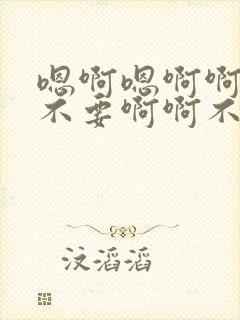 嗯啊嗯啊啊
不要啊啊不
汶滔滔